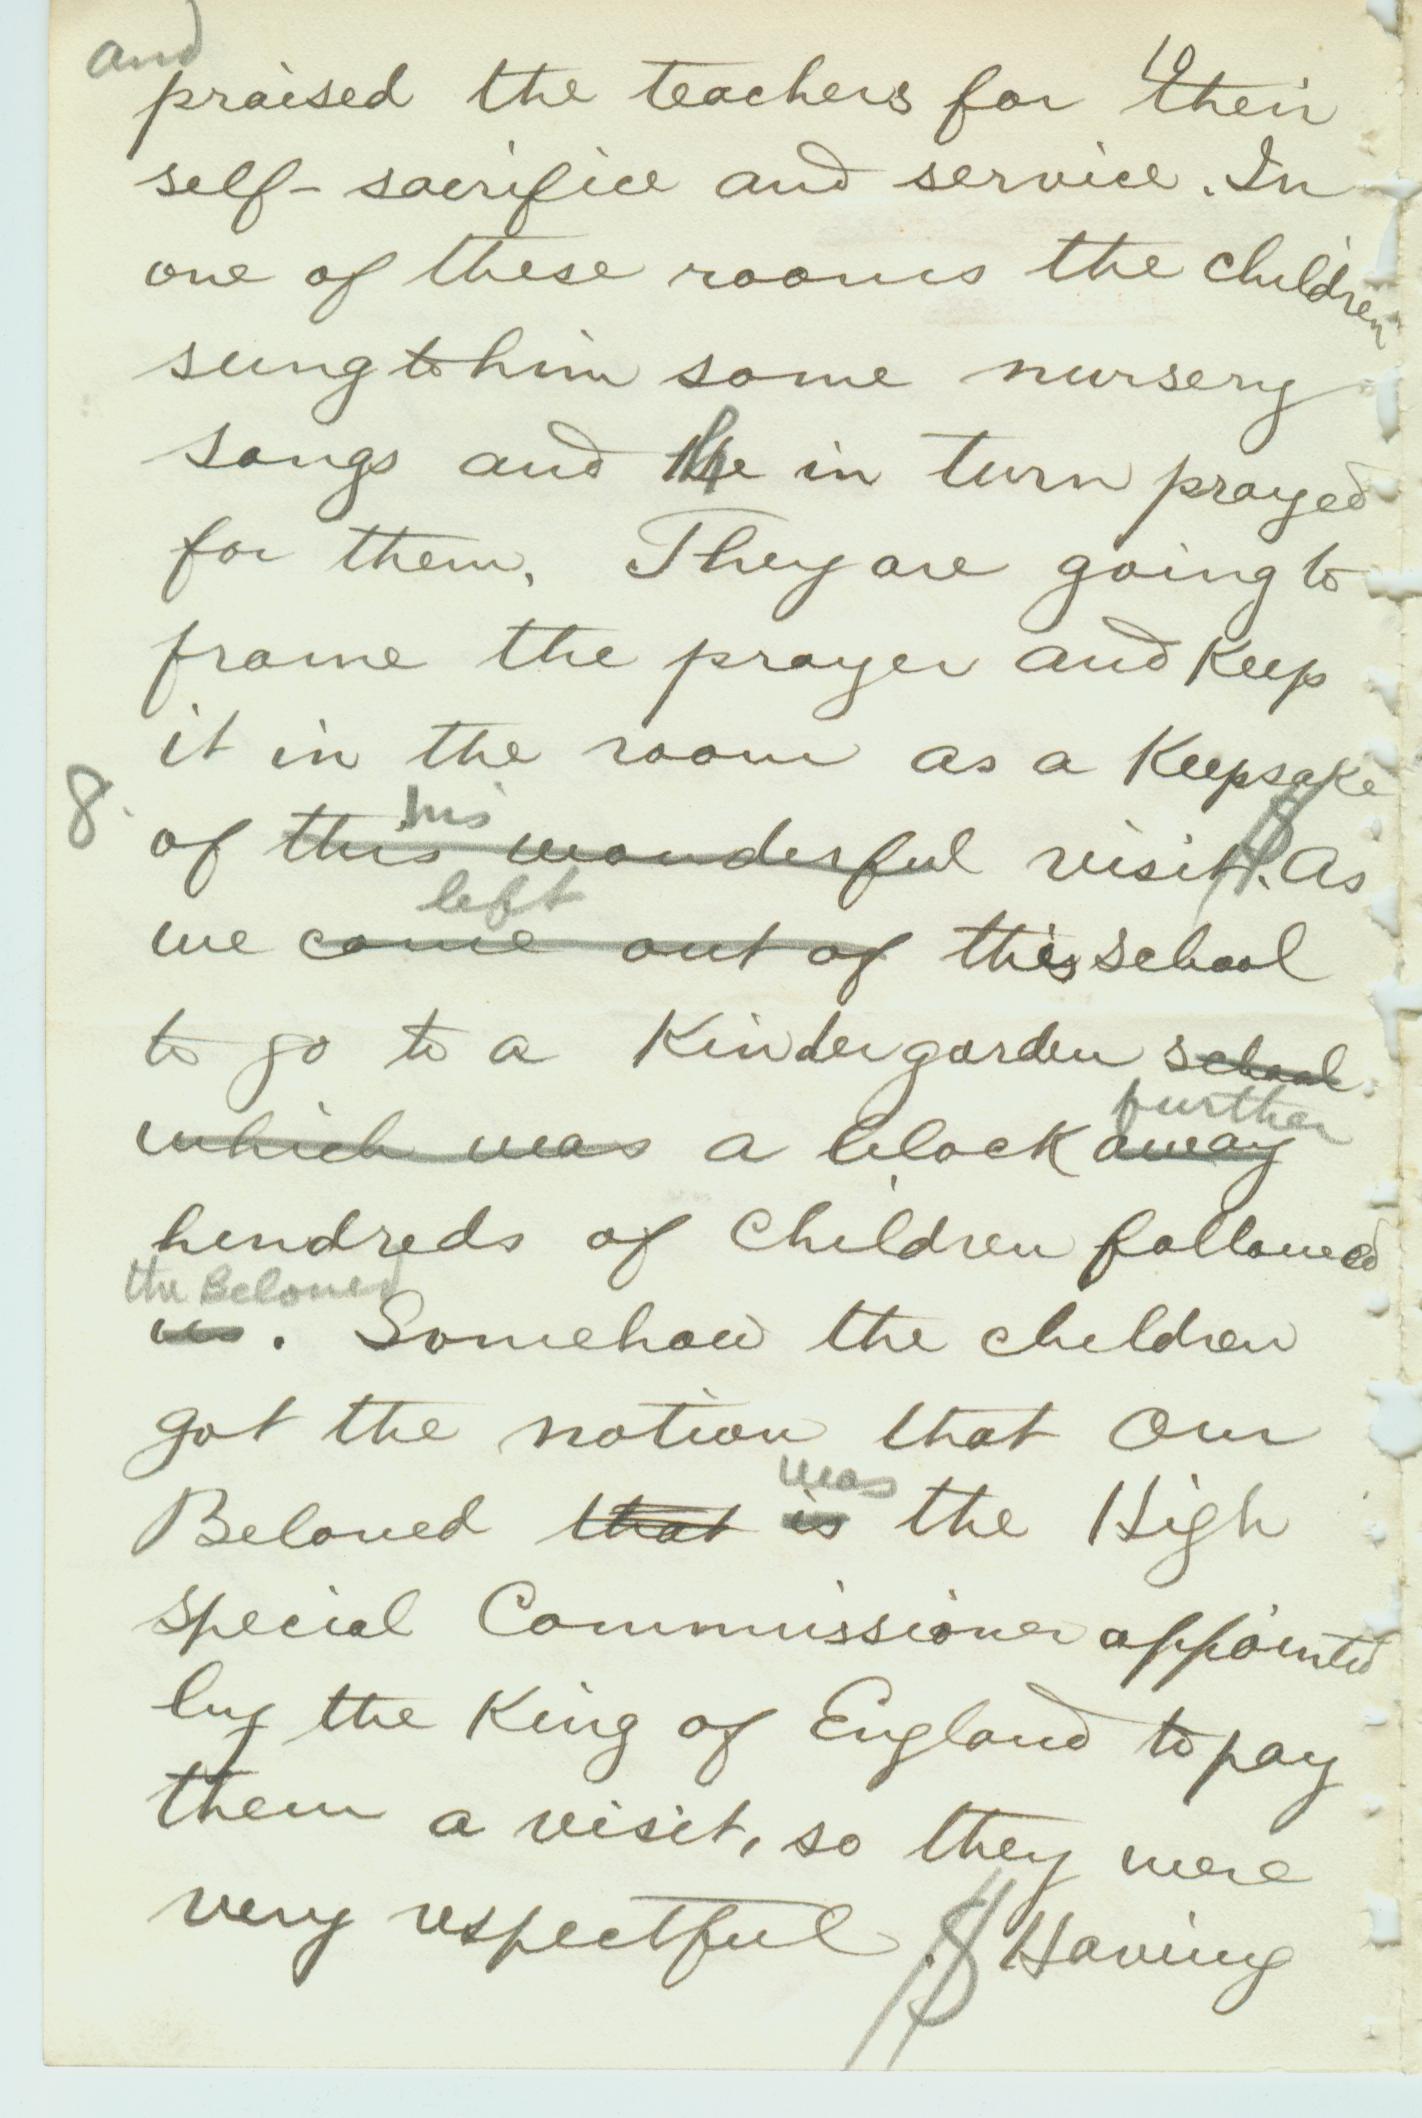 and
10
praised the teachers for their
self-sacrifice and service. In
one of these rooms the children
sung to him some nursery
songs and He in turn prayed
for them. They are going to
frame the prayer and Keep
it in the room as a Keepsake
8. his
of this wonderful visit. As
left
we come out of this school
to go to a Kindergarden school
further
which was a block away
hundreds of children followed
the Beloved
us. Somehow the children
got the notion that Our
was
Beloved that is the High
special Commissioner appointed
by the King of England to pay
them a visit, so they were
very respectful. Having